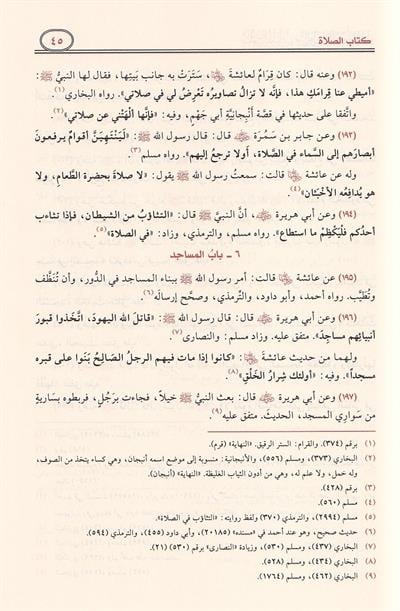 كتاب الصلاة
٤٥
(١٩٢) وعنه قال: كان قِرَامٌ لعائشةَ ﵂، سَتَرَتْ به جانب بَيتِها، فقال لها النبيُّ ﷺ:
«أميطي عنا قِرامَكِ هذا، فإنَّه لا تزالُ تصاويرُه تَعْرِضُ لي في صلاتي». رواه البخاري(١).
واتَّفقا على حديثها في قصَّة أَنْبِجَانِيَّةِ أبي جَهْمٍ، وفيه: «فإنَّها أَلْهَتْني عن صلاتي»(٢).
(١٩٣) وعن جابر بن سَمُرَة ﵁ قال: قال رسول الله ﷺ: «لَيَنْتَهِيَنَّ أقوامٌ يرفعونَ
أبصارَهم إلى السَّماء في الصَّلاة، أو لا ترجع إليهم». رواه مسلم(٣).
وله عن عائشة ﵂ قالت: سمعتُ رسول الله ﷺ يقول: «لا صلاةَ بحضرة الطَّعامِ، ولا
هو يُدافِعُه الأخْبَثان»(٤).
(١٩٤) وعن أبي هريرة ﵁، أنَّ النبيَّ ﷺ قال: «التثاؤبُ من الشيطان، فإذا تثاءب
أحدُكم فلْيَكْظِم ما استطاع». رواه مسلم، والترمذي، وزاد: «في الصلاة»(٥).
٦ - بابُ المساجدِ
(١٩٥) عن عائشة ﵂ قالت: أمر رسول الله ﷺ ببناء المساجد في الدُّور، وأن تُنَظَّفَ
وتُطَيَّب. رواه أحمد، وأبو داود، والتِّرمذي، وصحَّح إرسالَه(٦).
(١٩٦) وعن أبي هريرة ﵁ قال: قال رسول الله ﷺ: «قاتلَ الله اليهودَ، اتَّخَذوا قبورَ
أنبيائهم مساجِدَ». متفق عليه. وزاد مسلم: والنصارى(٧).
ولهما من حديث عائشةَ ﵂: «كانوا إذا مات فيهم الرجلُ الصَّالِحُ بَنَوا على قبره
مسجداً». وفيه: «أولئك شِرارُ الخَلْقِ»(٨).
(١٩٧) وعن أبي هريرة ﵁ قال: بعث النبيُّ ﷺ خيلاً، فجاءت برَجُلٍ، فربطوه بساريةٍ
من سَوارِي المسجد، الحديث. متفق عليه(٩).
(١) برقم (٣٧٤). والقرام: الستر الرقيق. «النهاية» (قرم).
(٢) البخاري (٣٧٣)، ومسلم (٥٥٦)، والأنبجانية: منسوبة إلى موضع اسمه أنبجان، وهي كساء يتخذ من الصوف،
وله خمل، ولا علم له، وهي من أدون الثياب الغليظة. «النهاية» (أنبجان).
(٣) برقم (٤٢٨).
(٤) مسلم (٥٦٠).
(٥) مسلم (٢٩٩٤)، والترمذي (٣٧٠) ولفظ روايته: «التثاؤب في الصلاة».
(٦) حديث صحيح، وهو عند أحمد في «مسنده» (٢٠١٨٥)، وأبي داود (٤٥٥)، والترمذي (٥٩٤).
(٧) البخاري (٤٣٧)، ومسلم (٥٣٠)، وزيادة «النصارى» برقم (٥٣٠) (٢١).
(٨) البخاري (٤٣٤)، ومسلم (٥٢٨).
(٩) البخاري (٤٦٢)، ومسلم (١٧٦٤).